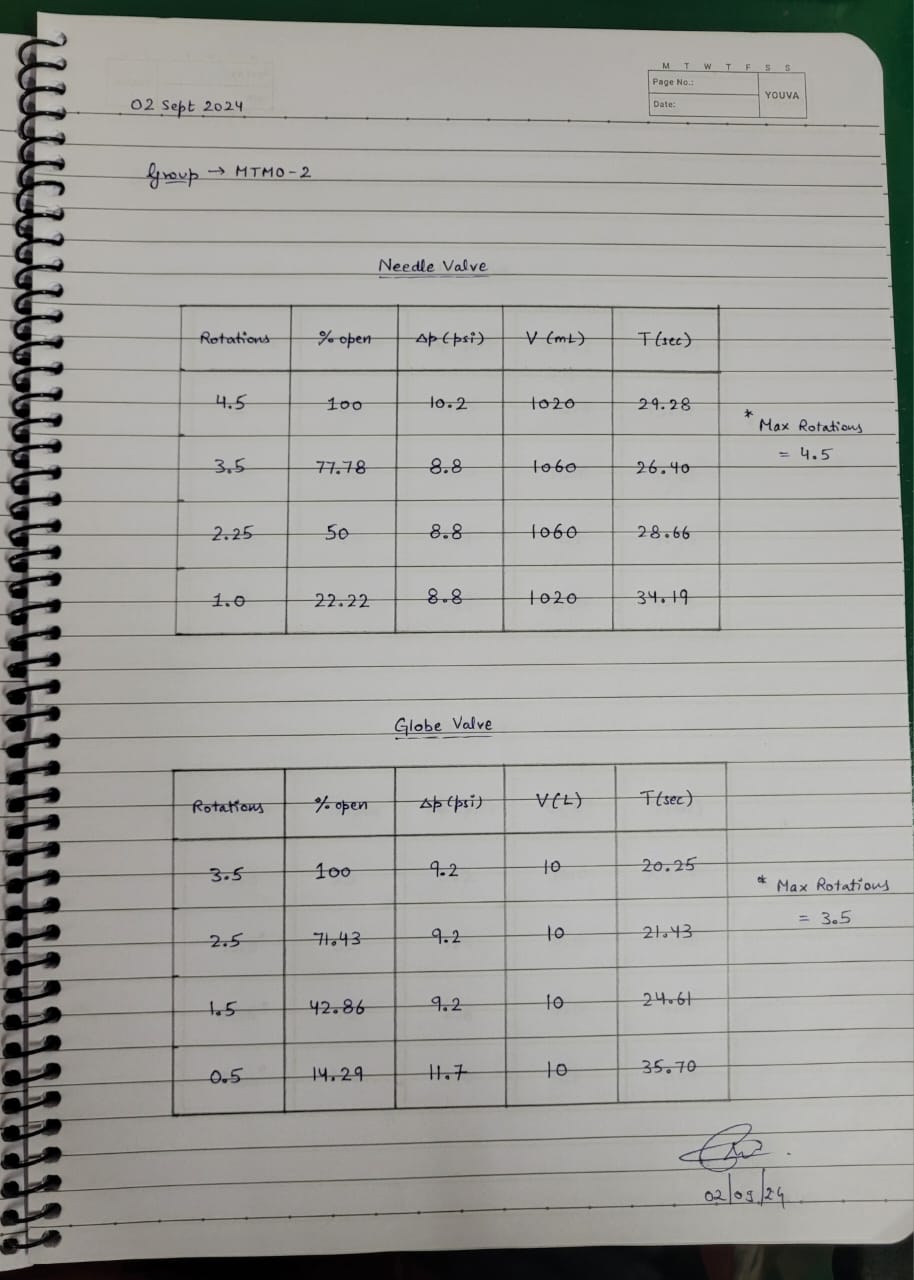 M T W T F S S
Page No.:
YOUVA
Date:
02 Sept 2024
Group → MTMO-2
Needle Valve
Rotations % open Δp (psi) V (mL) T (sec)
4.5 100 10.2 1020 29.28
3.5 77.78 8.8 1060 26.40
2.25 50 8.8 1060 28.66
1.0 22.22 8.8 1020 34.19
* Max Rotations
= 4.5
Globe Valve
Rotations % open Δp (psi) V (L) T (sec)
3.5 100 9.2 10 20.25
2.5 71.43 9.2 10 21.43
1.5 42.86 9.2 10 24.61
0.5 14.29 11.7 10 35.70
* Max Rotations
= 3.5
02/09/24